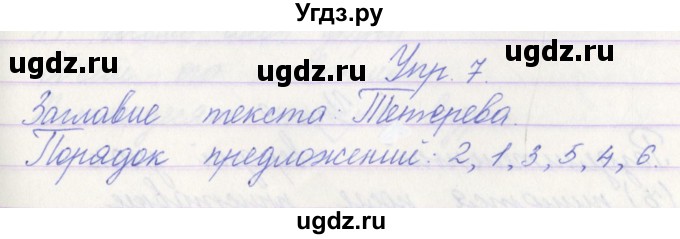 Угдз.ру
ugdz.ru ugdz.ru ugdz.ru
Упр. 7.
Заглавие текста: Тетерева.
Порядок предложений: 2, 1, 3, 5, 4, 6.
ugdz.ru ugdz.ru
ugdz.ru